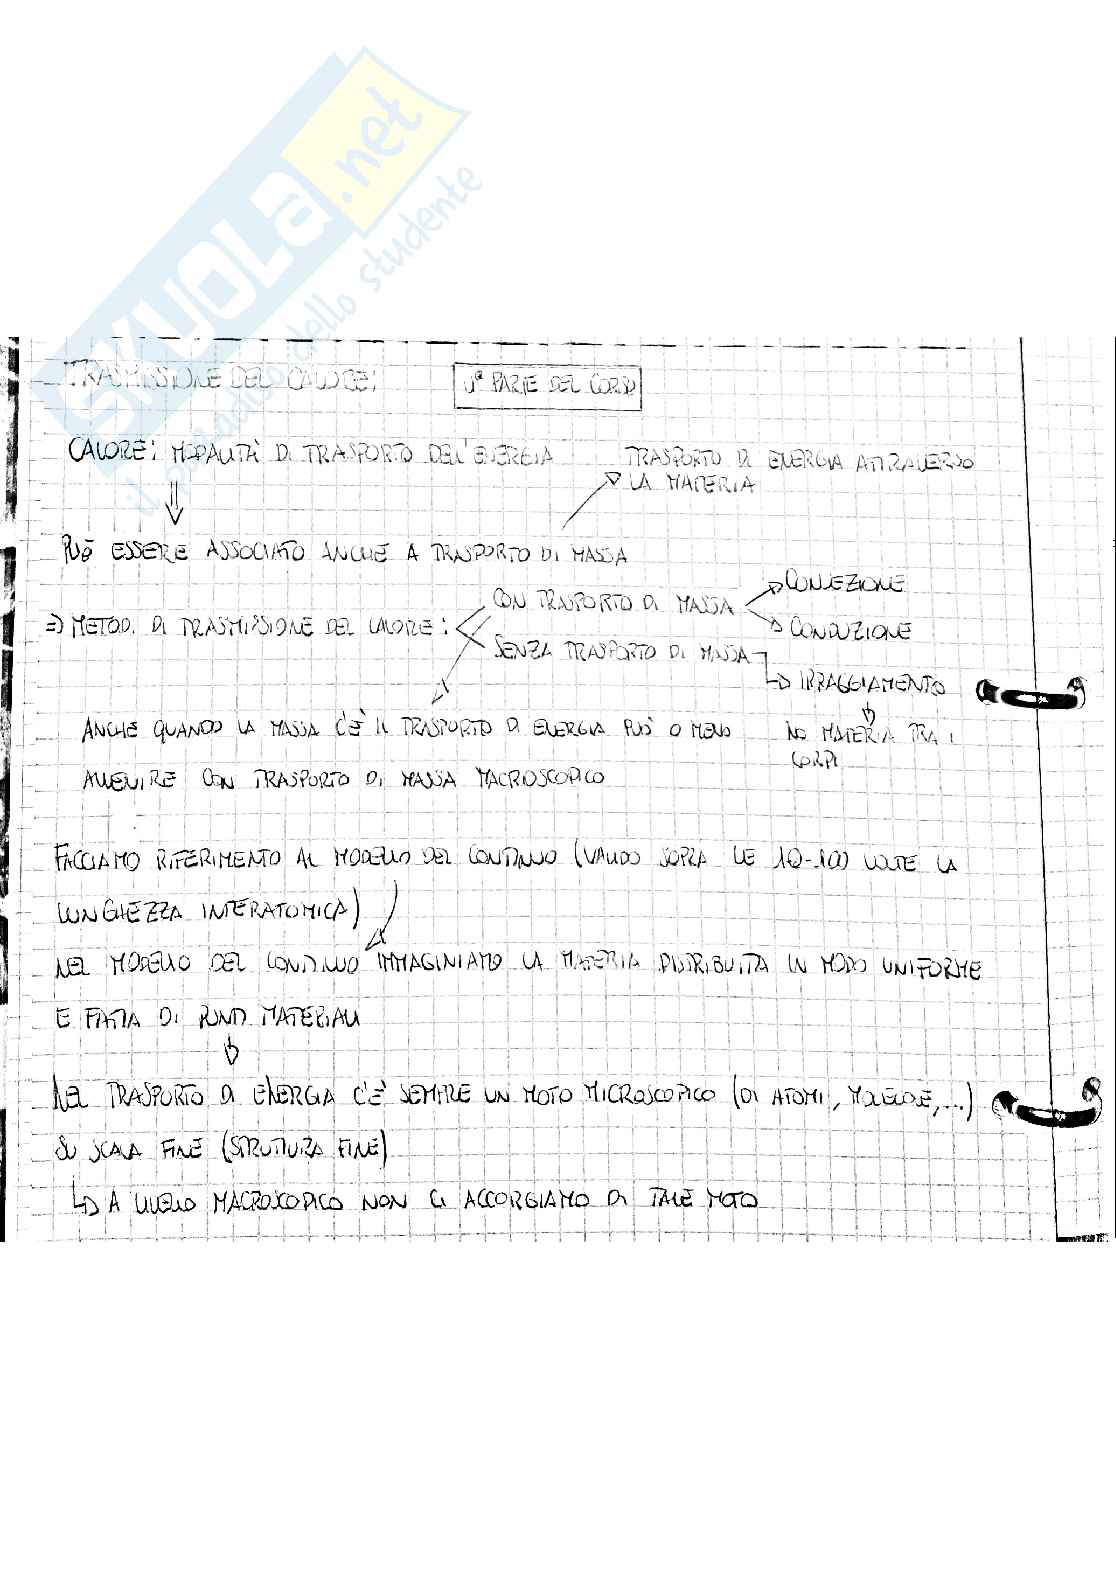 SKUOLA.net
il mondo dello studente
TRASMISSIONE DEL CALORE:
PARTE DEL CORSO
CALORE: MODALITÀ DI TRASPORTO DELL'ENERGIA
TRASPORTO DI ENERGIA ATTRAVERSO
LA MATERIA
PUÒ ESSERE ASSOCIATO ANCHE A TRASPORTO DI MASSA
⇒ METODI DI TRASMISSIONE DEL CALORE:
CON TRASPORTO DI MASSA
CONVEZIONE
CONDUZIONE
SENZA TRASPORTO DI MASSA
IRRAGGIAMENTO
NO MATERIA TRA I
CORPI
ANCHE QUANDO LA MASSA C'È IL TRASPORTO DI ENERGIA PUÒ O MENO
AVVENIRE CON TRASPORTO DI MASSA MACROSCOPICO
FACCIAMO RIFERIMENTO AL MODELLO DEL CONTINUO (VALIDO SOPRA LE 10-100 VOLTE LA
LUNGHEZZA INTERATOMICA)
NEL MODELLO DEL CONTINUO IMMAGINIAMO LA MATERIA DISTRIBUITA IN MODO UNIFORME
E FATTA DI PUNTI MATERIALI
NEL TRASPORTO DI ENERGIA C'È SEMPRE UN MOTO MICROSCOPICO (DI ATOMI, MOLECOLE, ...)
SU SCALA FINE (STRUTTURA FINE)
A LIVELLO MACROSCOPICO NON CI ACCORGIAMO DI TALE MOTO